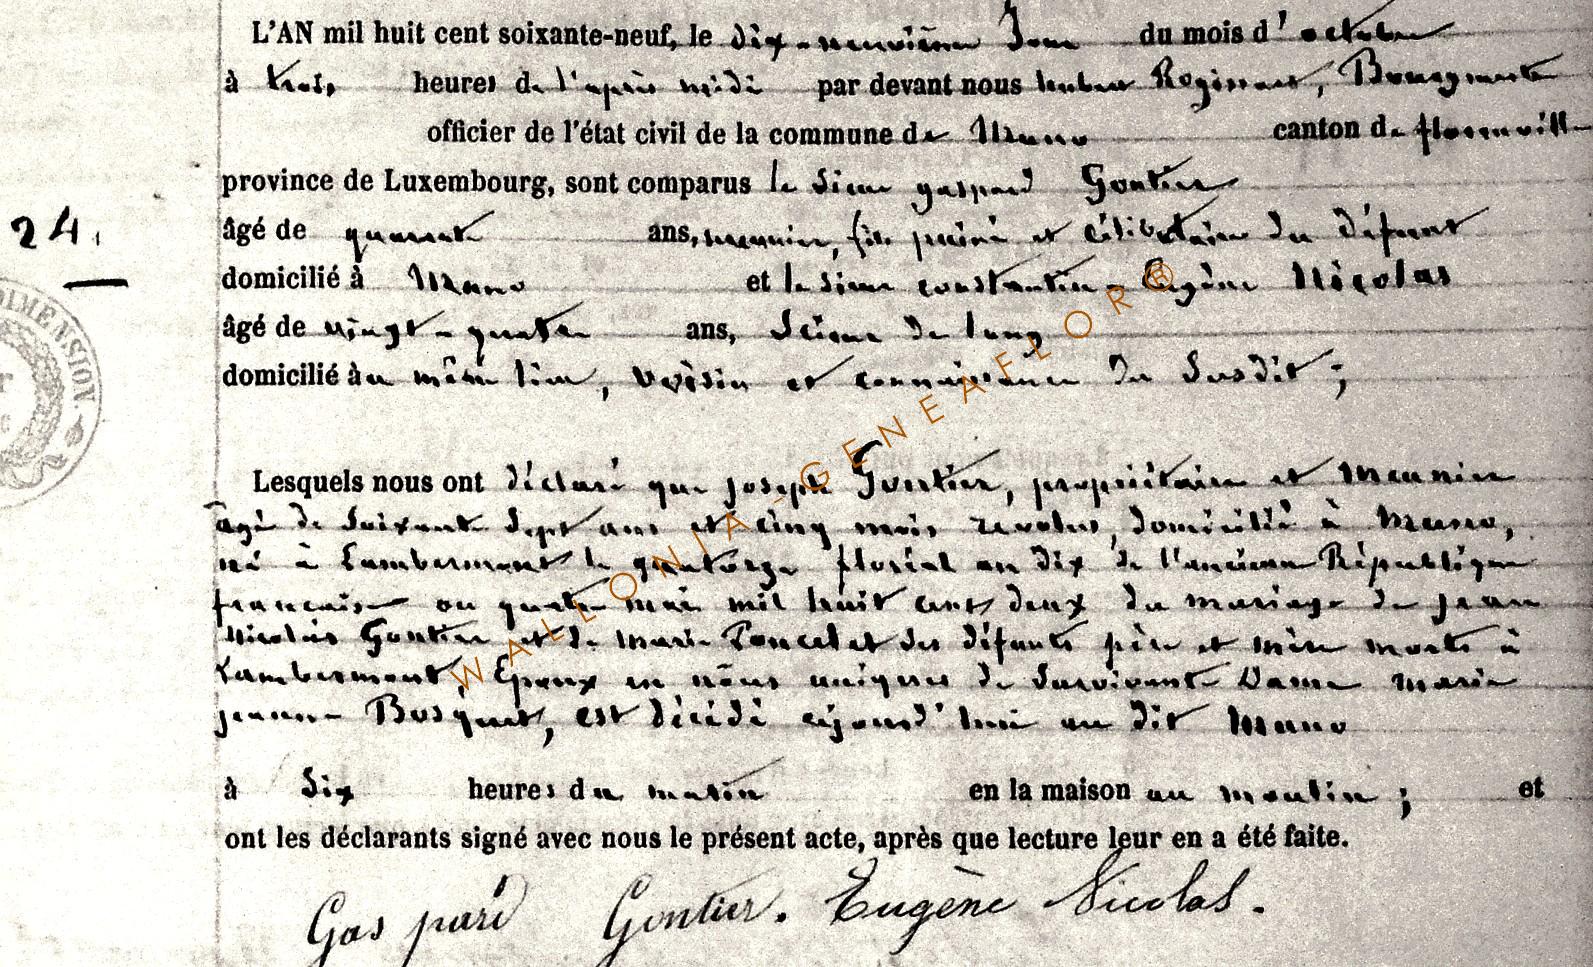 L'AN mil huit cent soixante-neuf, le dix-neuvième Jour du mois d'octobre
à trois heures de l'après midi par devant nous hubert Regissart, Bourgmestre
officier de l'état civil de la commune de Muno canton de florenvill
province de Luxembourg, sont comparus le Sieur gaspard Gontier
24. âgé de quarante ans, meunier, fils puiné et célibataire du défunt
domicilié à Muno et le Sieur constantin-Eugène Nicolas
âgé de vingt-quatre ans, Scieur de long
domicilié au même lieu, voisin et connaissance du Susdit;
DIMENSION.
Lesquels nous ont déclaré que joseph Gontier, propriétaire et Meunier
âgé de Soixante Sept ans et cinq mois revolus, domicilié à Muno,
né à Lambermont le quatorze floréal an dix de l'ancienne République
française ou quatre mai mil huit cent deux du mariage de jean
Nicolas Gontier et de Marie Poncelet des défunts père et mère morts à
Lambermont, Epoux en nôces uniques de Survivante Dame Marie
jeanne Bosquet, est décédé cejourd'hui au dit Muno
à Six heures du matin en la maison au moulin; et
ont les déclarants signé avec nous le présent acte, après que lecture leur en a été faite.
Gaspard Gontier. Eugène Nicolas.
WALLONIA-GENEAFLOR®